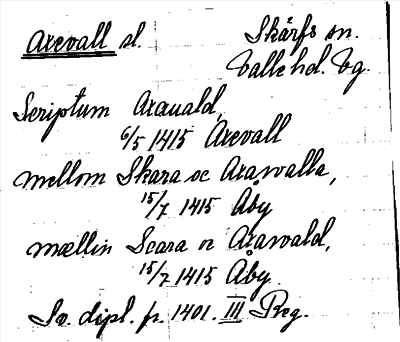 Axevall sl. Skärfs sn.
Valle hd. Vg.
Scriptum Axauald,
6/5 1415 Axevall
mellom Skara oc Axawalla,
15/7 1415 Åby
mællin Scara oc Axawald,
15/7 1415 Åby.
Sv. dipl. fr. 1401. III Reg.